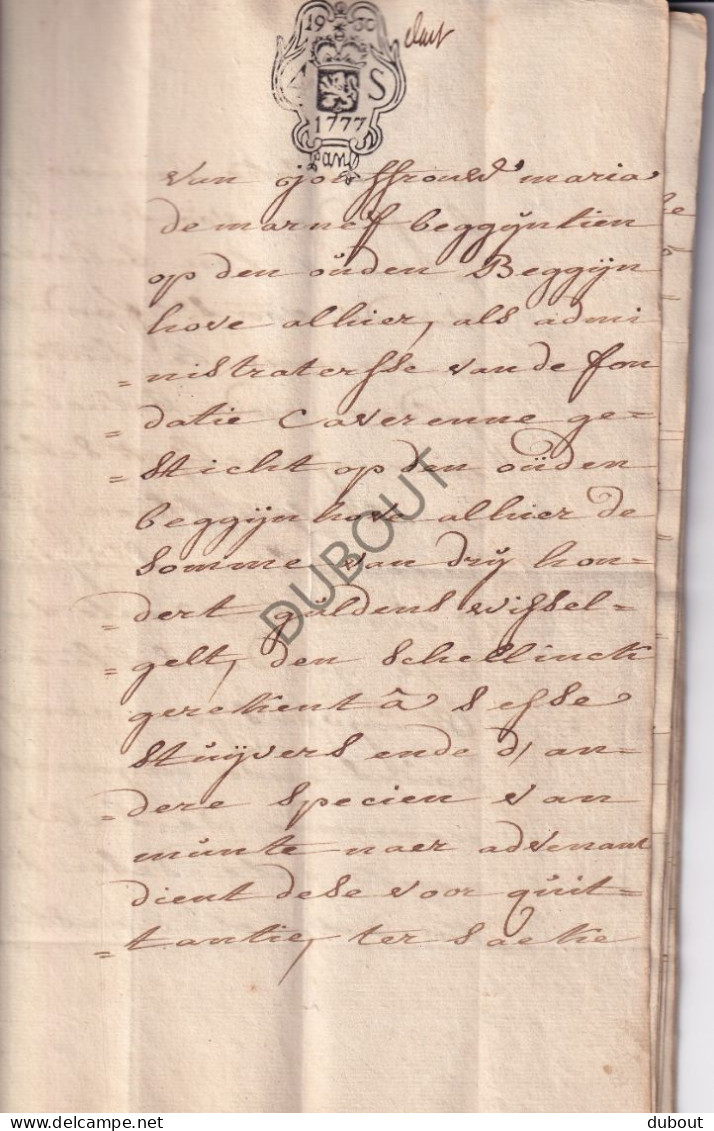 19 80
4 S
1777
van joufffrouw maria
de marneff beggijntien
op den oüden Beggijn
hove alhier, als admi
=nistratersse van de fon
=datie Caverenne ge=
=sticht op den oüden
beggijnhove alhier de
somme van drÿ hon=
=dert güldens wissel=
=gelt, den schellinck
gerekent â sesse
stüijvers ende d'an=
=dere specien van
münte naer advenant
dient dese voor qüit=
=tantie, ter saeke
DUBOUT
www.delcampe.net
dubout